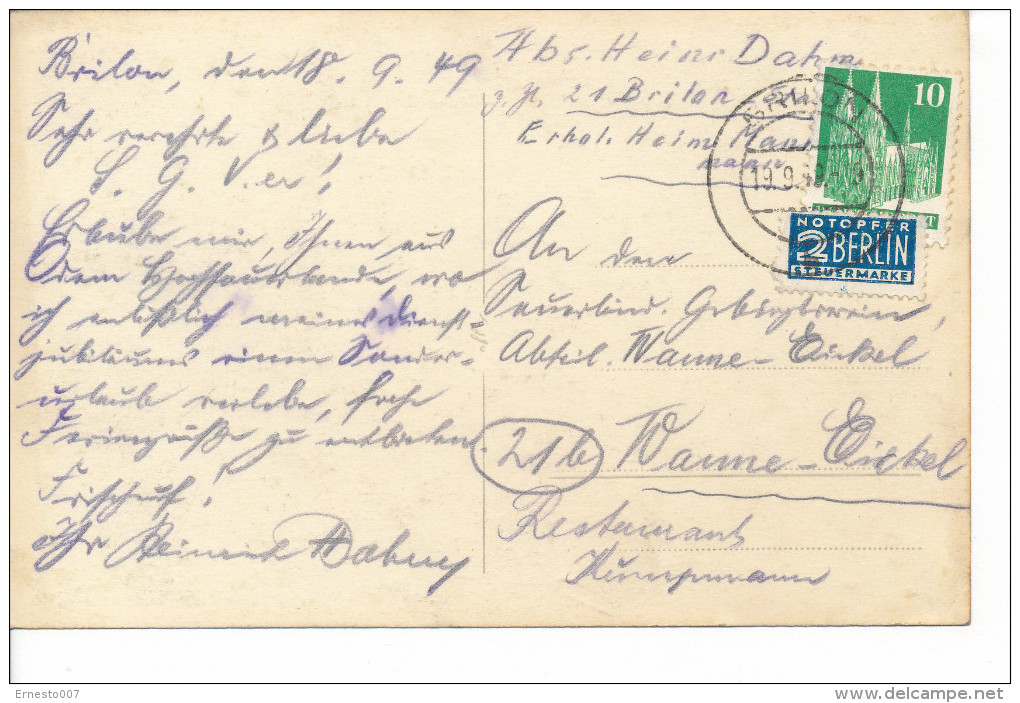 Brilon, den 18. 9. 49
Sehr verehrte & liebe
S. G. V. er!
Erlaube mir, Ihnen aus
dem Hochsauerlande, wo
ich anläßlich meines Dienst-
jubiläums einen Sonder-
urlaub verlebe, frohe
Feriengrüße zu entbieten
Frischauf!
Ihr Heinrich Dahm
Abs. Heinr Dahm
z. Zt. 21 Brilon
Erhol. Heim
An den
Sauerländ. Gebirgsverein,
Abteil. Wanne-Eickel
21b Wanne-Eickel
Restaurant
10
19.9.49
NOTOPFER
2 BERLIN
STEUERMARKE
Ernesto007
www.delcampe.net